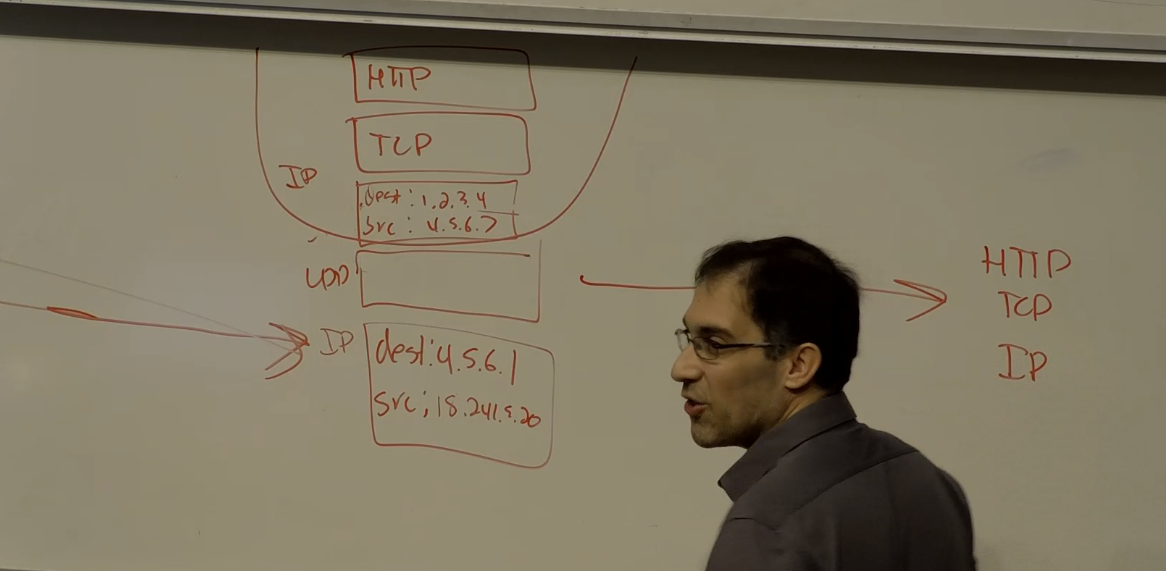 HTTP
TCP
IP
dest: 1.2.3.4
src: 4.5.6.7
UDP
IP
dest: 4.5.6.1
src: 18.241.9.20
HTTP
TCP
IP